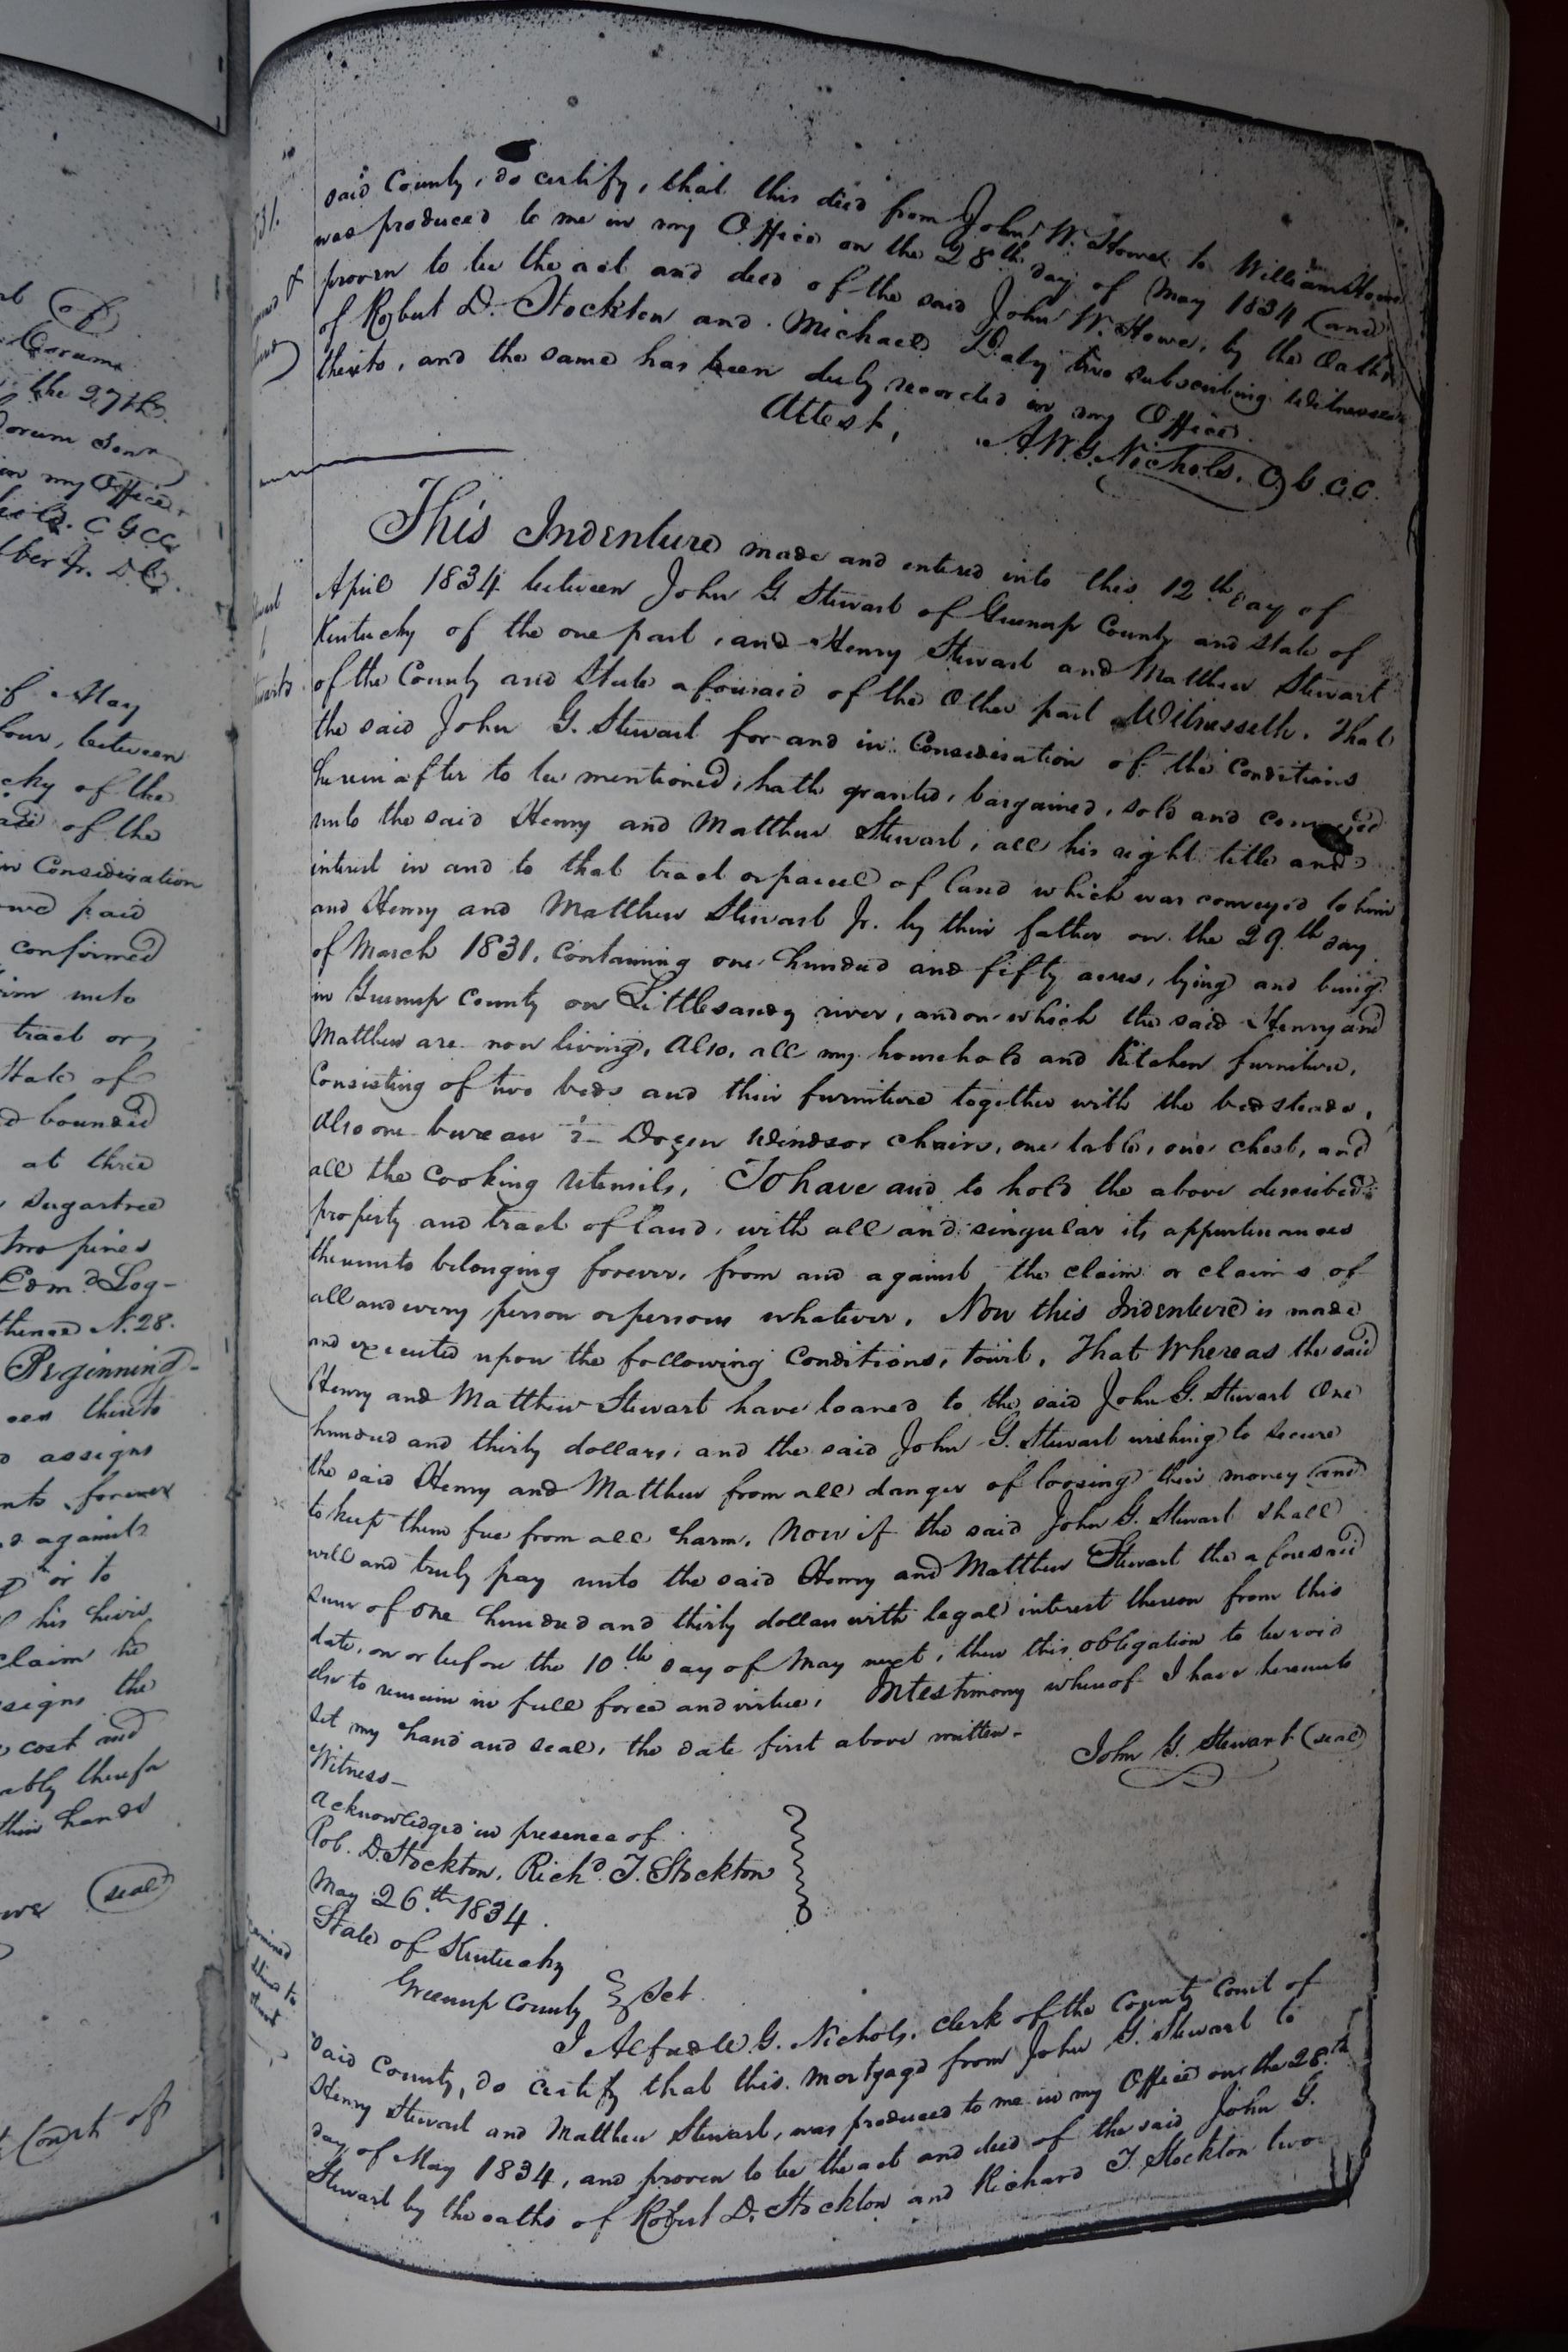 rt of
Corum
the 27th
Corum Senr
in my Office
C G C C
tber Jr. D.C.
of May
four, between
cky of the
of the
in Consideration
paid
confirmed
unto
tract or
State of
d bounded
at three
sugartree
two pines
Edmd Log-
thence N. 28.
Beginning-
thereto
assigns
forever
against
or to
his heirs
claim he
ssigns the
cost and
therefor
their hands
(seal)
Court of
said County, do certify, that this deed from John W. Howe to William Howe
was produced to me in my Office on the 28th day of May 1834 and
proven to be the act and deed of the said John W. Howe, by the Oaths
of Robert D. Stockton and Michael Daly two subscribing Witnesses
thereto, and the same has been duly recorded in my Office.
Attest, A.W.G. Nichols. C.G.C.C.
This Indenture made and entered into this 12th day of
April 1834 between John G Stewart of Greenup County and State of
Kentucky of the one part, and Henry Stewart and Matthew Stewart
of the County and State aforesaid of the Other part Witnesseth. That
the said John G. Stewart for and in Consideration of the Conditions
hereinafter to be mentioned, hath granted, bargained, sold and conveyed
unto the said Henry and Matthew Stewart, all his right title and
interest in and to that tract or parcel of land which was conveyed to him
and Henry and Matthew Stewart Jr. by their father on the 29th day
of March 1831. Containing one hundred and fifty acres, lying and being
in Greenup County on Littlesandy river, and on which the said Henry and
Matthew are now living, Also, all my household and Kitchen furniture,
Consisting of two beds and their furniture together with the bedsteads,
Also one bureau Dozen Windsor chairs, one table, one chest, and
all the cooking utensils, To have and to hold the above described
property and tract of land, with all and singular its appurtenances
thereunto belonging forever, from and against the claim or claims of
all and every person or persons whatever. Now this Indenture is made
and executed upon the following Conditions, towit, That Whereas the said
Henry and Matthew Stewart have loaned to the said John G. Stewart One
hundred and thirty dollars, and the said John G. Stewart wishing to secure
the said Henry and Matthew from all danger of loosing their money and
to keep them free from all harm. Now if the said John G. Stewart shall
well and truly pay unto the said Henry and Matthew Stewart the aforesaid
sum of one hundred and thirty dollars with legal interest thereon from this
date, on or before the 10th day of May next, then this obligation to be void
else to remain in full force and virtue, In testimony whereof I have hereunto
set my hand and seal, the date first above written-
John G. Stewart (seal)
Witness-
Acknowledged in presence of
Rob. D. Stockton, Richd. T. Stockton
May 26th 1834.
State of Kentucky
Greenup County } Sct.
I Alfred W. G. Nichols, clerk of the County Court of
Said County, do certify that this mortgage from John G. Stewart to
Henry Stewart and Matthew Stewart, was produced to me in my Office on the 28th
day of May 1834, and proven to be the act and deed of the said John G.
Stewart by the oaths of Robert D. Stockton and Richard T. Stockton two